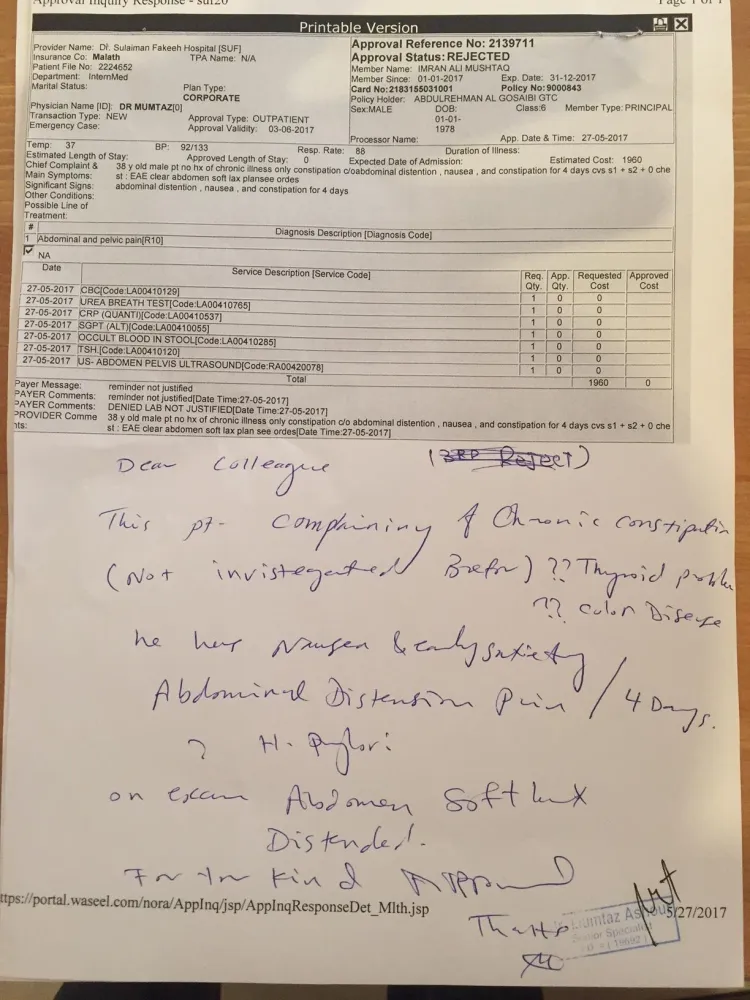 Approval Inquiry Response - sul20
Page 1 of 1
Printable Version
Provider Name: Dr. Sulaiman Fakeeh Hospital [SUF]
Insurance Co: Malath TPA Name: N/A
Patient File No: 2224652
Department: InternMed
Marital Status: Plan Type:
CORPORATE
Physician Name [ID]: DR MUMTAZ[0]
Transaction Type: NEW Approval Type: OUTPATIENT
Emergency Case: Approval Validity: 03-06-2017
Approval Reference No: 2139711
Approval Status: REJECTED
Member Name: IMRAN ALI MUSHTAQ
Member Since: 01-01-2017 Exp. Date: 31-12-2017
Card No:2183155031001 Policy No:9000843
Policy Holder: ABDULREHMAN AL GOSAIBI GTC
Sex:MALE DOB: Class:6 Member Type: PRINCIPAL
01-01-
1978
Processor Name: App. Date & Time: 27-05-2017
Temp: 37 BP: 92/133 Resp. Rate: 88 Duration of Illness:
Estimated Length of Stay: Approved Length of Stay: 0 Expected Date of Admission: Estimated Cost: 1960
Chief Complaint & 38 y old male pt no hx of chronic illness only constipation c/oabdominal distention , nausea , and constipation for 4 days cvs s1 + s2 + 0 che
Main Symptoms: st : EAE clear abdomen soft lax plansee ordes
Significant Signs: abdominal distention , nausea , and constipation for 4 days
Other Conditions:
Possible Line of
Treatment:
# Diagnosis Description [Diagnosis Code]
1 Abdominal and pelvic pain[R10]
NA
Date Service Description [Service Code] Req. Qty. App. Qty. Requested Cost Approved Cost
27-05-2017 CBC[Code:LA00410129] 1 0 0
27-05-2017 UREA BREATH TEST[Code:LA00410765] 1 0 0
27-05-2017 CRP (QUANTI)[Code:LA00410537] 1 0 0
27-05-2017 SGPT (ALT)[Code:LA00410055] 1 0 0
27-05-2017 OCCULT BLOOD IN STOOL[Code:LA00410285] 1 0 0
27-05-2017 TSH.[Code:LA00410120] 1 0 0
27-05-2017 US- ABDOMEN PELVIS ULTRASOUND[Code:RA00420078] 1 0 0
Total 1960 0
Payer Message: reminder not justified
PAYER Comments: reminder not justified[Date Time:27-05-2017]
PAYER Comments: DENIED LAB NOT JUSTIFIED[Date Time:27-05-2017]
PROVIDER Comme 38 y old male pt no hx of chronic illness only constipation c/o abdominal distention , nausea , and constipation for 4 days cvs s1 + s2 + 0 che
nts: st : EAE clear abdomen soft lax plan see ordes[Date Time:27-05-2017]
Dear Colleague (3RD Reject)
This pt- Complaining of Chronic constipation
(Not invistegated Befor) ?? Thyroid proble
?? colon Disease
he has Nausea & early satiety
Abdominal Distension Pain / 4 Days.
? H. Pylori
on exam Abdomen Soft lax
Distended.
For Kind Approval
https://portal.waseel.com/nora/AppInq/jsp/AppInqResponseDet_Mlth.jsp
5/27/2017
Thanks
Mumtaz
Senior Specialist